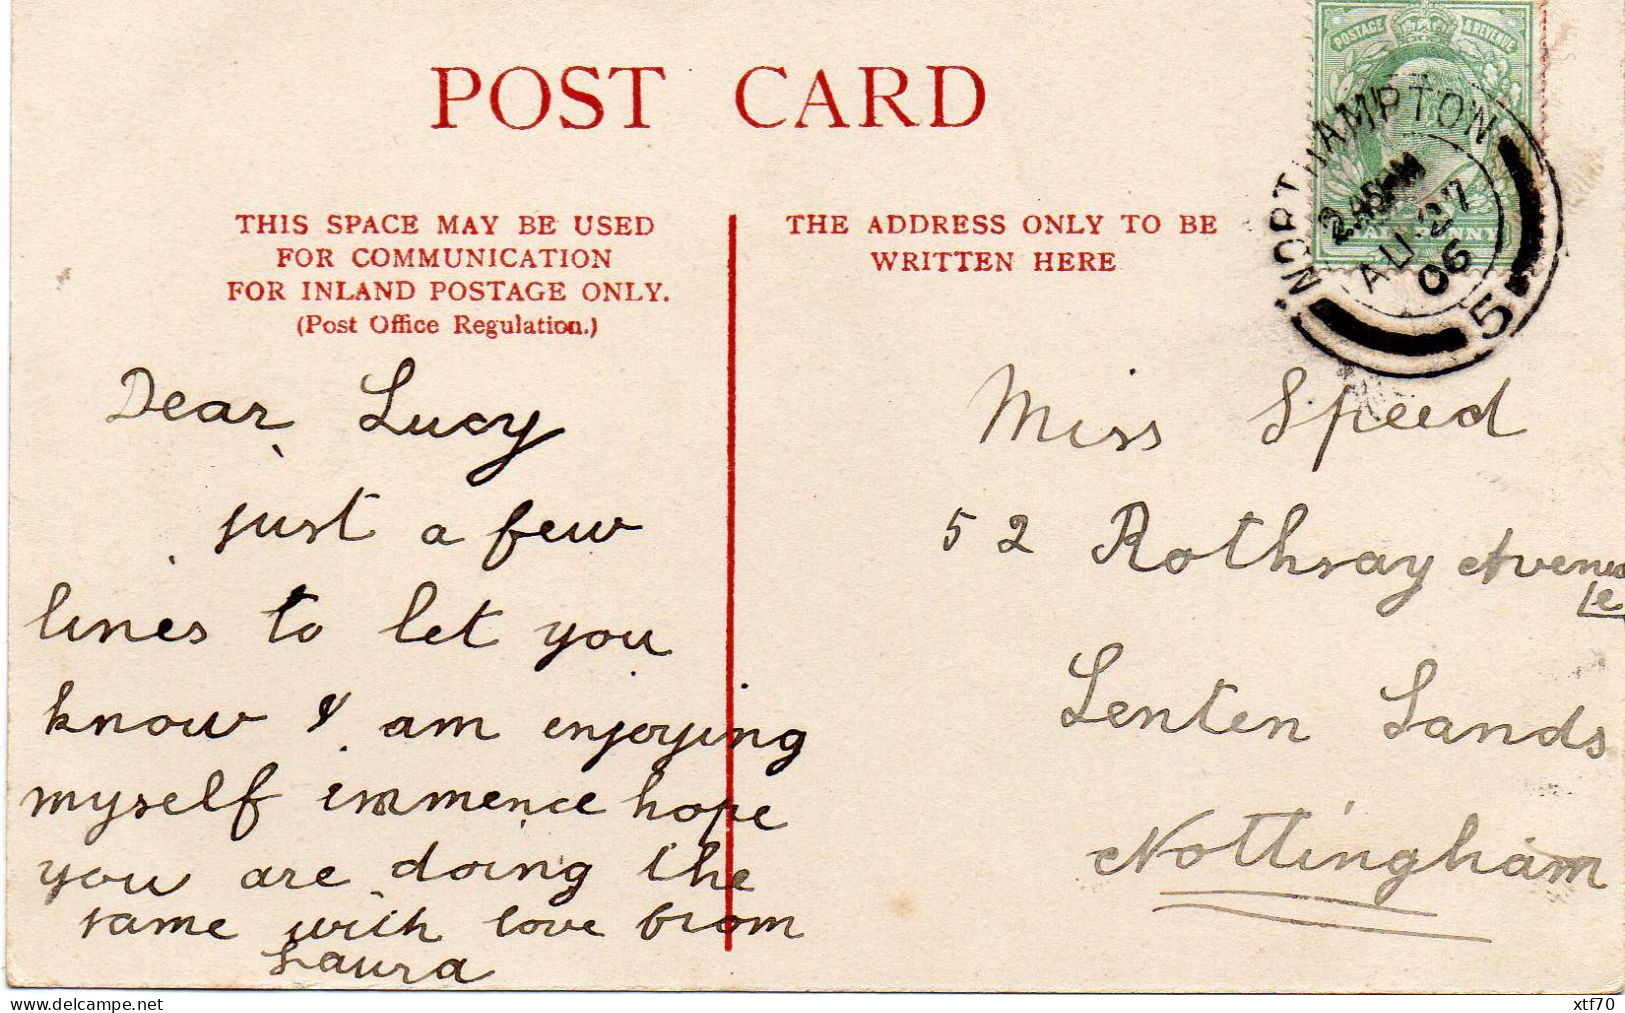 POST CARD
POSTAGE & REVENUE
HALFPENNY
NORTHAMPTON
AU 27
06
5
THIS SPACE MAY BE USED
FOR COMMUNICATION
FOR INLAND POSTAGE ONLY.
(Post Office Regulation.)
THE ADDRESS ONLY TO BE
WRITTEN HERE
Dear Lucy
just a few
lines to let you
know I am enjoying
myself immence hope
you are doing the
same with love from
Laura
Miss Speed
52 Rothsay Avenue
Le
Lenten Sands
Nottingham
www.delcampe.net
xtf70